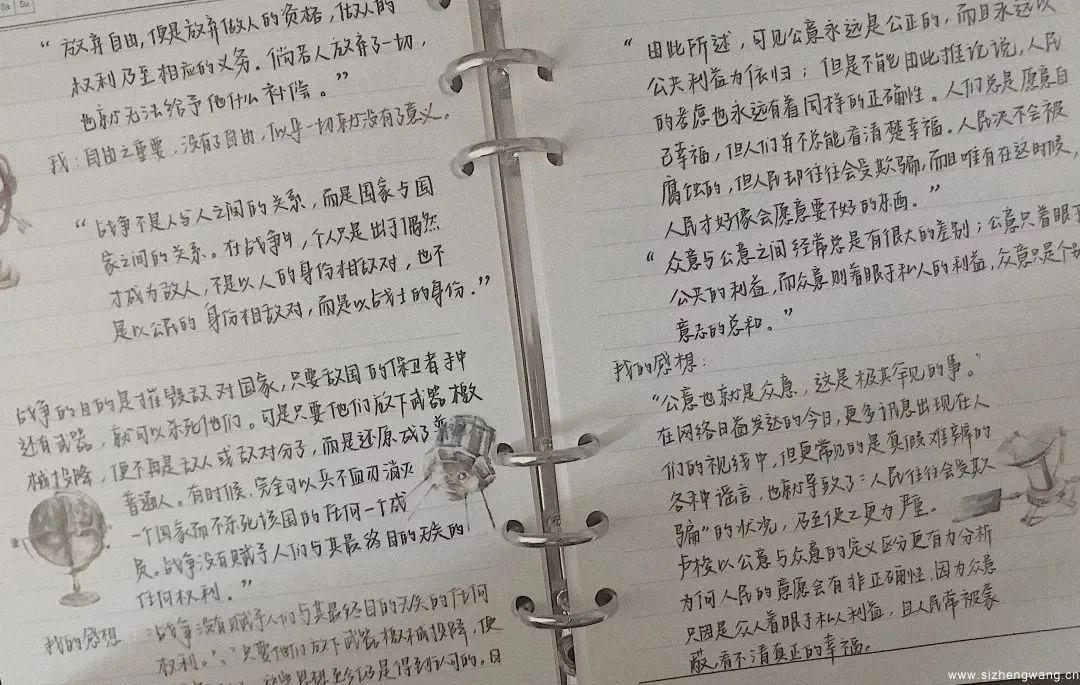 “放弃自由,便是放弃做人的资格,做人的
权利乃至相应的义务。倘若人放弃了一切,
也就无法给予他什么补偿。”
我:自由之重要,没有了自由,似乎一切就没有了意义。
“战争不是人与人之间的关系,而是国家与国
家之间的关系。在战争中,个人只是出于偶然
才成为敌人,不是以人的身份相敌对,也不
是以公民的身份相敌对,而是以战士的身份。”
战争的目的是摧毁敌对国家,只要敌国的保卫者手中
还有武器,就可以杀死他们。可是只要他们放下武器缴
械投降,便不再是敌人或敌对分子,而是还原成了普
普通人。有时候,完全可以兵不血刃消灭
一个国家而不杀死该国的任何一个成
员。战争没有赋予人们与其最终目的无关的
任何权利。”
我的感想:“战争没有赋予人们与其最终目的无关的任何
权利。”、“只要他们放下武器缴械投降,便
得到认可的。
“由此所述,可见公意永远是公正的,而且永远以
公共利益为依归;但是不能由此推论说,人民
的考虑也永远有着同样的正确性。人们总是愿意自
己幸福,但人们并不总能看清楚幸福。人民决不会被
腐蚀的,但人民却往往会受欺骗,而且唯有在这时候,
人民才好像会愿意要不好的东西。”
“众意与公意之间经常总是有很大的差别;公意只着眼于
公共的利益,而众意则着眼于私人的利益,众意只是个别
意志的总和。”
我的感想:
“公意也就是众意,这是极其罕见的事。”
在网络日益发达的今日,更多讯息出现在人
们的视线中,但更常见的是真假难辨的
各种谣言,也就导致了“人民往往会受欺
骗”的状况,乃至使之更为严重。
卢梭以公意与众意的定义区分更有力分析
为何人民的意愿会有非正确性,因为众意
只因是众人着眼于私人利益,且人民常被蒙
蔽,看不清真正的幸福。
www.sizhengwang.cn